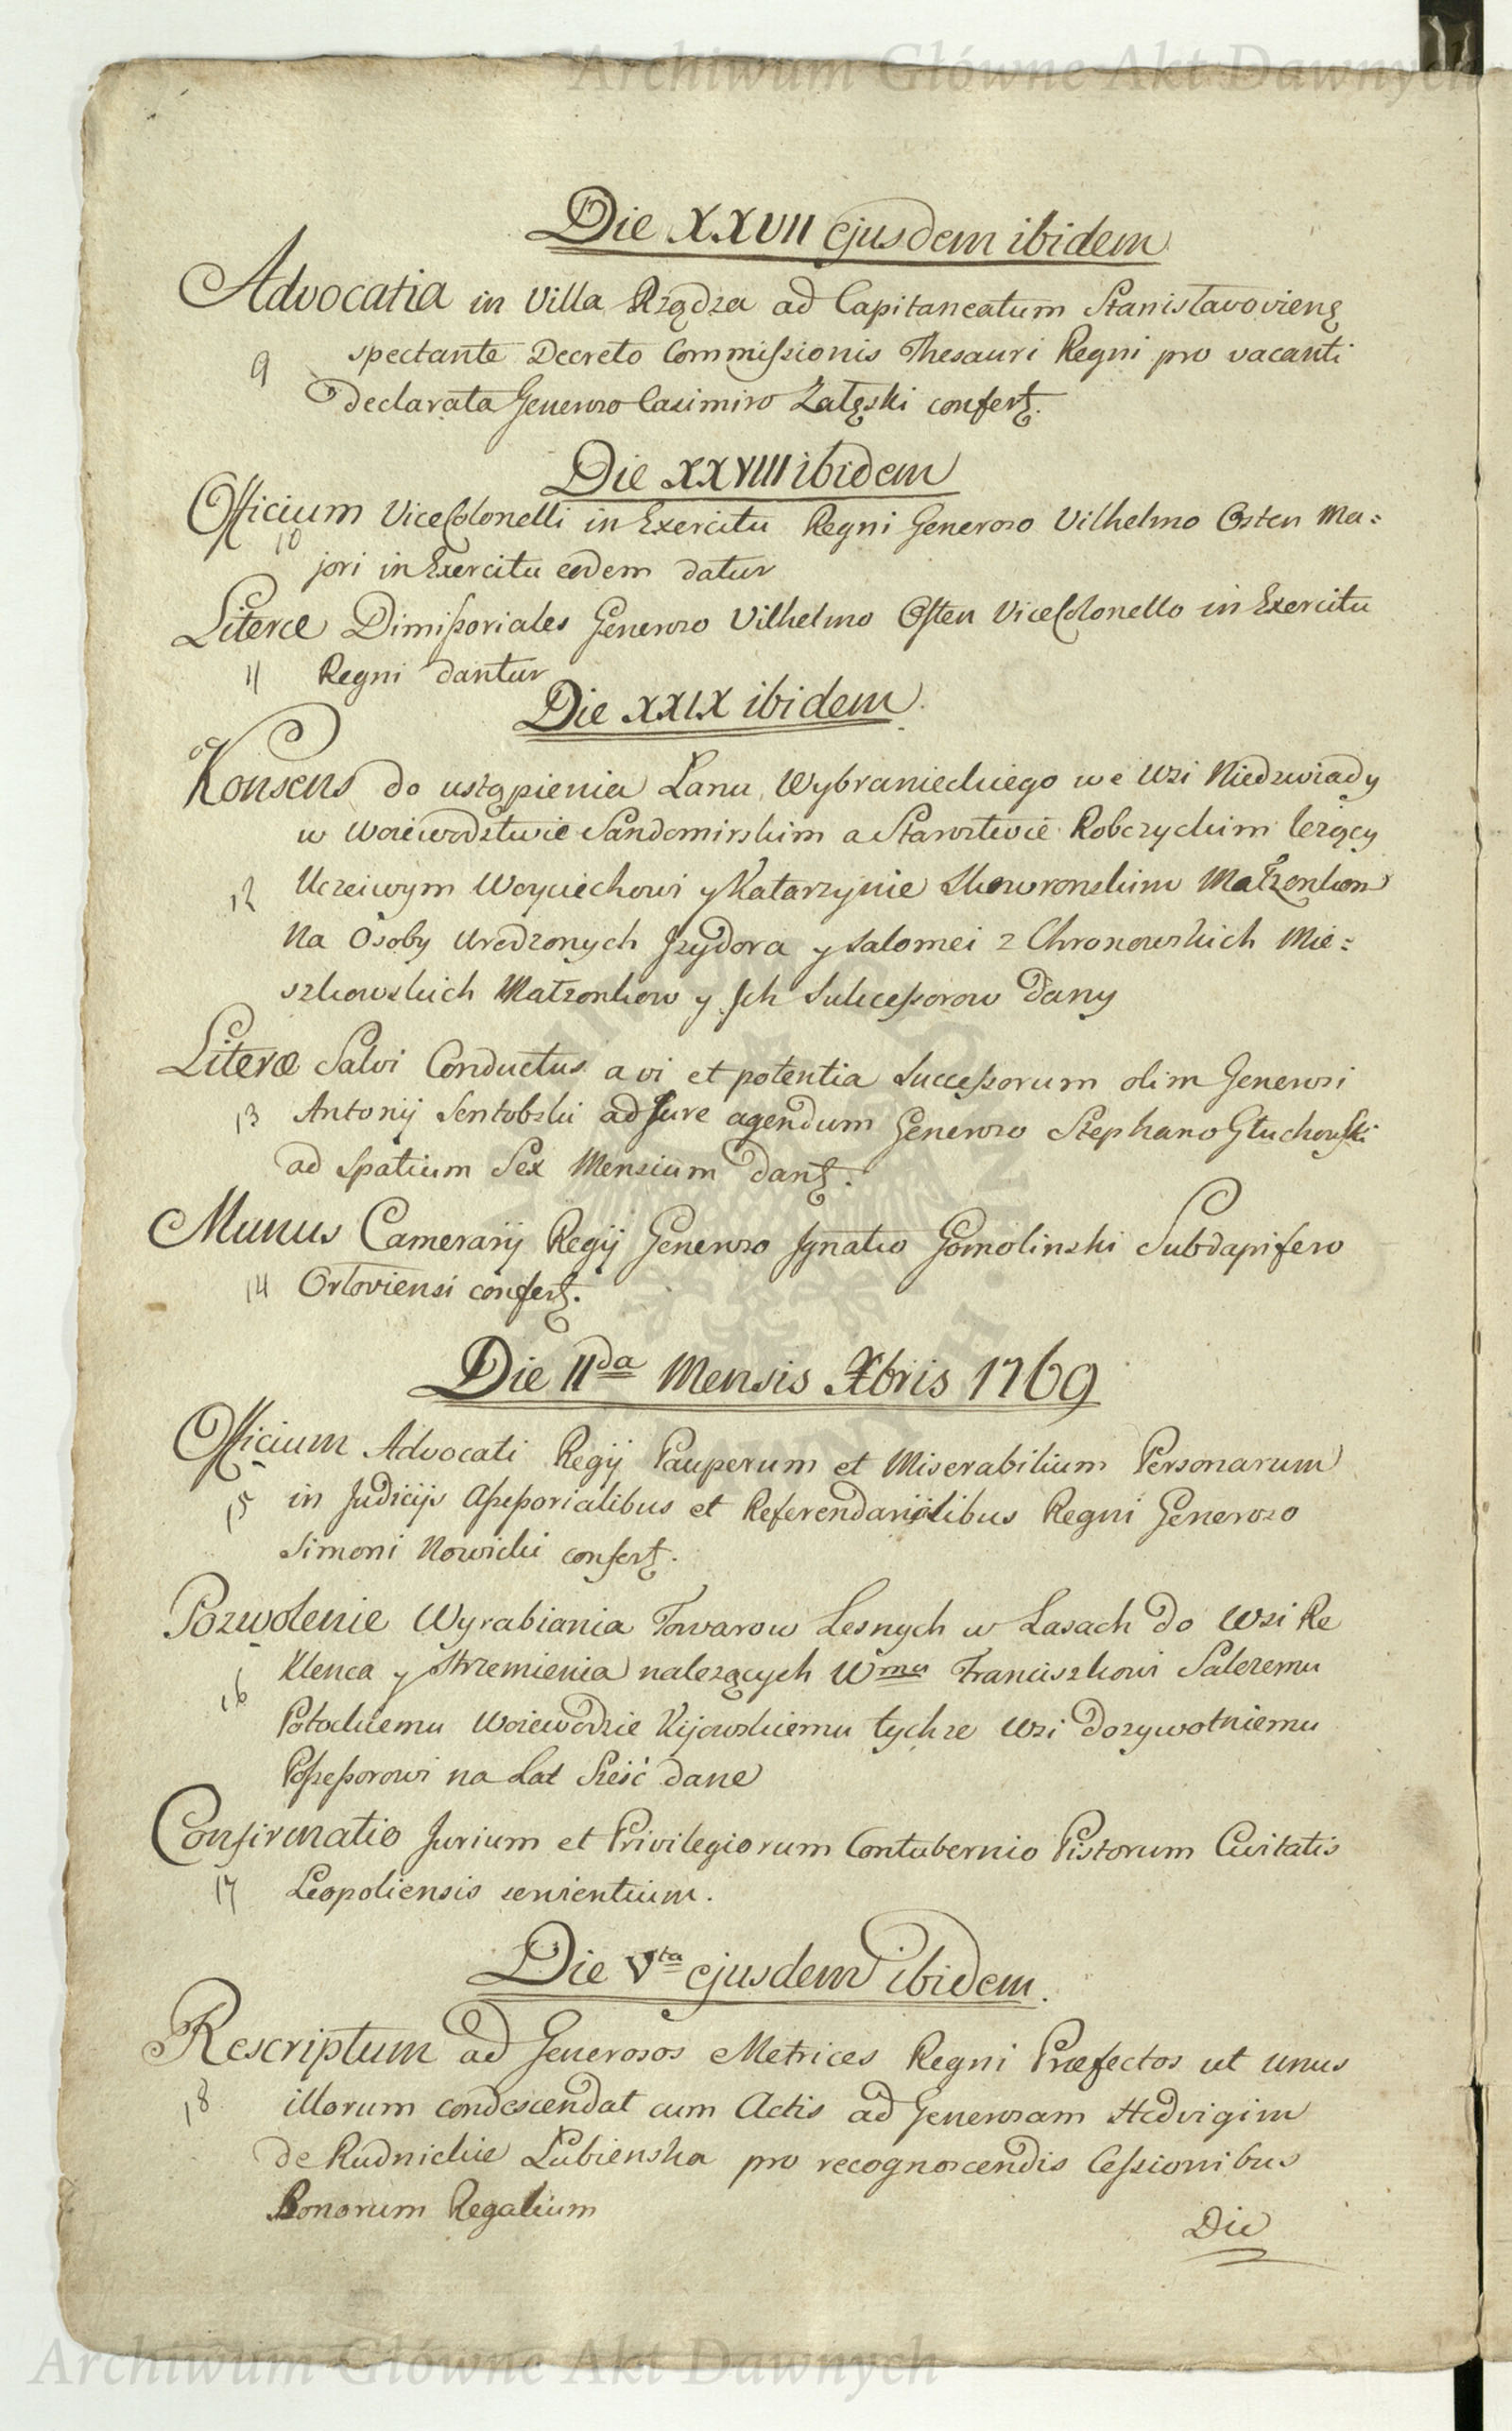 Archiwum Główne Akt Dawnych
Die XXVII ejusdem ibidem
Advocatia in Villa Rządza ad Capitaneatum Stanislavovienę
9 spectante Decreto Commissionis Thesauri Regni pro vacanti
declarata Generoso Casimiro Załęski confert.
Die XXVIII ibidem
Officium ViceColonelli in Exercitu Regni Generoso Vilhelmo Osten Ma=
10 jori in Exercitu eodem datur
Literæ Dimissoriales Generoso Vilhelmo Osten ViceColonello in Exercitu
11 Regni dantur
Die XXIX ibidem
Konsens do ustąpienia Łanu Wybranieckiego we Wsi Niedzwiady
w Woiewodztwie Sandomirskim a Starostwie Robczyckim lezący
12 Uczciwym Woyciechowi y Katarzynie Skowronskim Małżonkom
Na Osoby Urodzonych Jzydora y Salomei z Chronowskich Mie=
szkowskich Małzonkow y Jch Sukcessorow dany
Literæ Salvi Conductus a vi et potentia Successorum olim Generosi
13 Antonij Sentobski ad Jure agendum Generoso Stephano Głuchowski
ad spatium Sex Mensium dant.
Munus Camerarij Regij Generoso Jgnatio Gomolinski Subdapifero
14 Orłoviensi confert.
Die IIda Mensis Xbris 1769
Officium Advocati Regij Pauperum et Miserabilium Personarum
15 in Judicijs Assessorialibus et Referendarialibus Regni Generoso
Simoni Nowicki confert.
Pozwolenie Wyrabiania Towarow Lesnych w Lasach do Wsi Re
16 klenca y Strzemienia nalezących Wmu Franciszkowi Salezemu
Potockiemu Woiewodzie Kijowskiemu tychze Wsi dozywotniemu
Possessorowi na Lat Sześć dane
Confirmatio Jurium et Privilegiorum Contubernio Pistorum Civitatis
17 Leopoliensis servientium.
Die Vta ejusdem ibidem.
Rescriptum ad Generosos Metrices Regni Præfectos ut unus
18 illorum condescendat cum Actis ad Generosam Hedvigim
de Rudnickie Łubienska pro recognoscendis Cessionibus
Bonorum Regalium
Die
Archiwum Główne Akt Dawnych